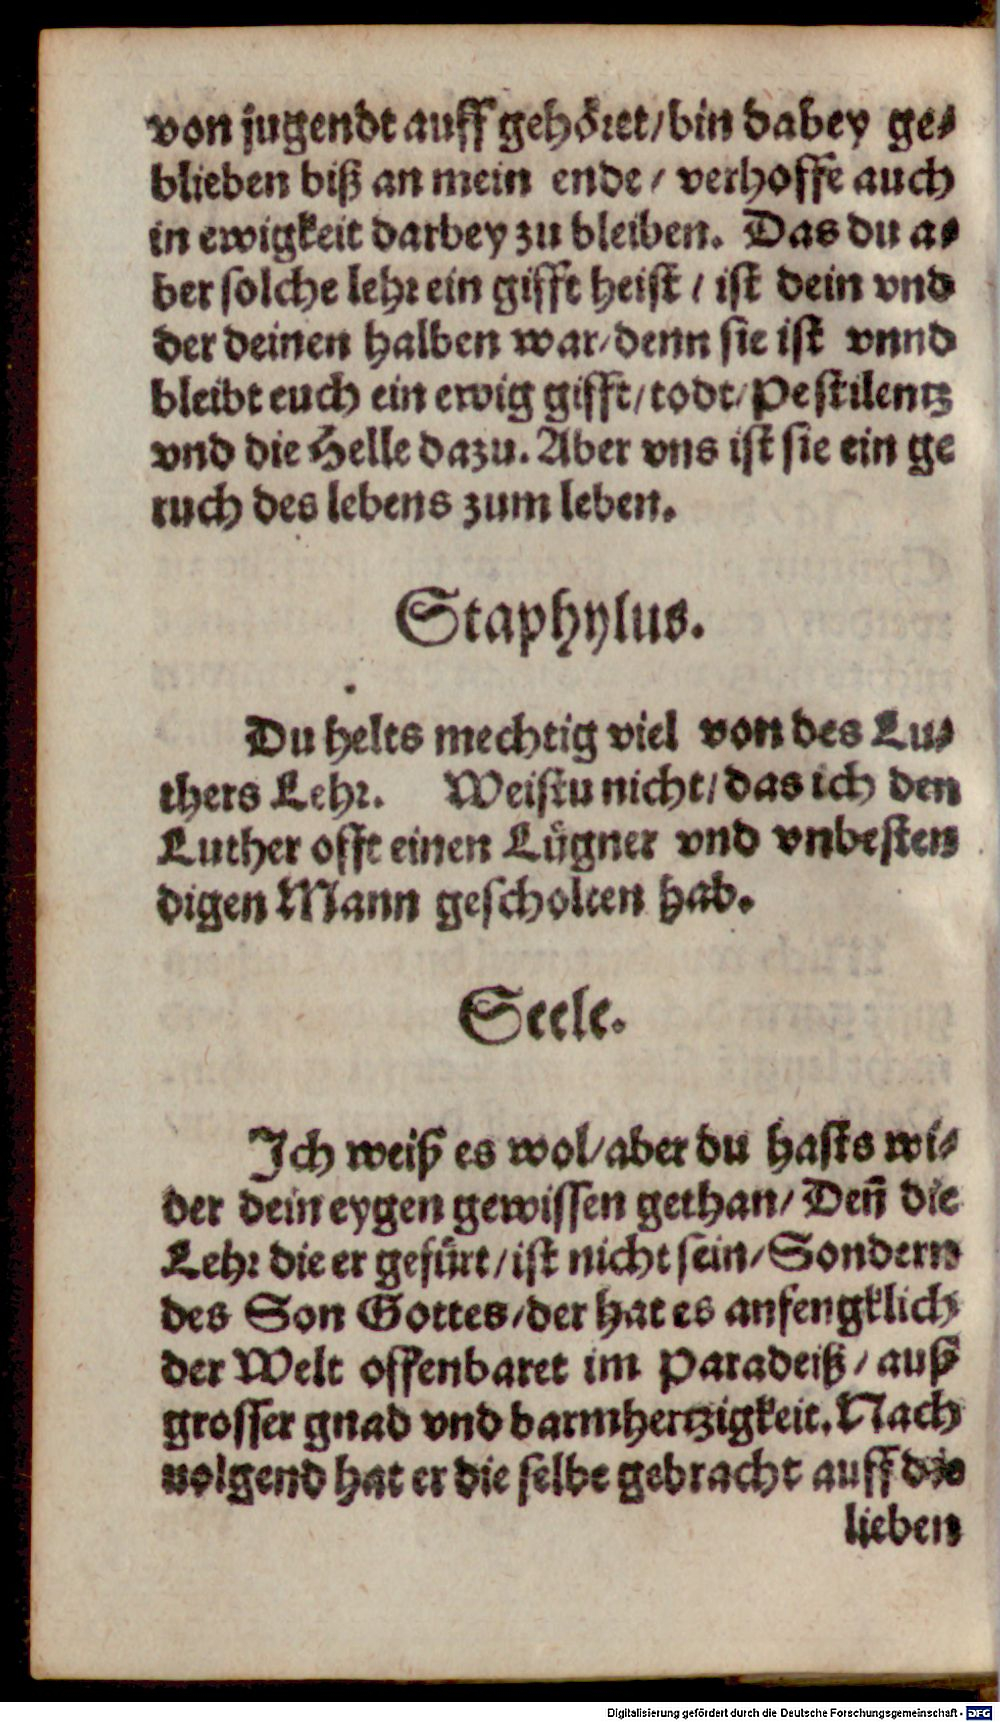 von jugendt auff gehöret/ bin dabey ge-
blieben biß an mein ende / verhoffe auch
in ewigkeit darbey zu bleiben. Das du a-
ber solche lehr ein gifft heist / ist dein vnd
der deinen halben war/ denn sie ist vnnd
bleibt euch ein ewig gifft/ todt/ Pestilentz
vnd die Helle dazu. Aber vns ist sie ein ge
ruch des lebens zum leben.
Staphylus.
Du helts mechtig viel von des Lu-
thers Lehr. Weistu nicht/ das ich den
Luther offt einen Lügner vnd vnbesten
digen Mann gescholten hab.
Seele.
Ich weiß es wol/ aber du hasts wi-
der dein eygen gewissen gethan/ Den̄ die
Lehr die er gefürt/ ist nicht sein/ Sondern
des Son Gottes/ der hat es anfengklich
der Welt offenbaret im Paradeiß / auß
grosser gnad vnd barmhertzigkeit. Nach
uolgend hat er die selbe gebracht auff die
lieben
Digitalisierung gefördert durch die Deutsche Forschungsgemeinschaft - DFG